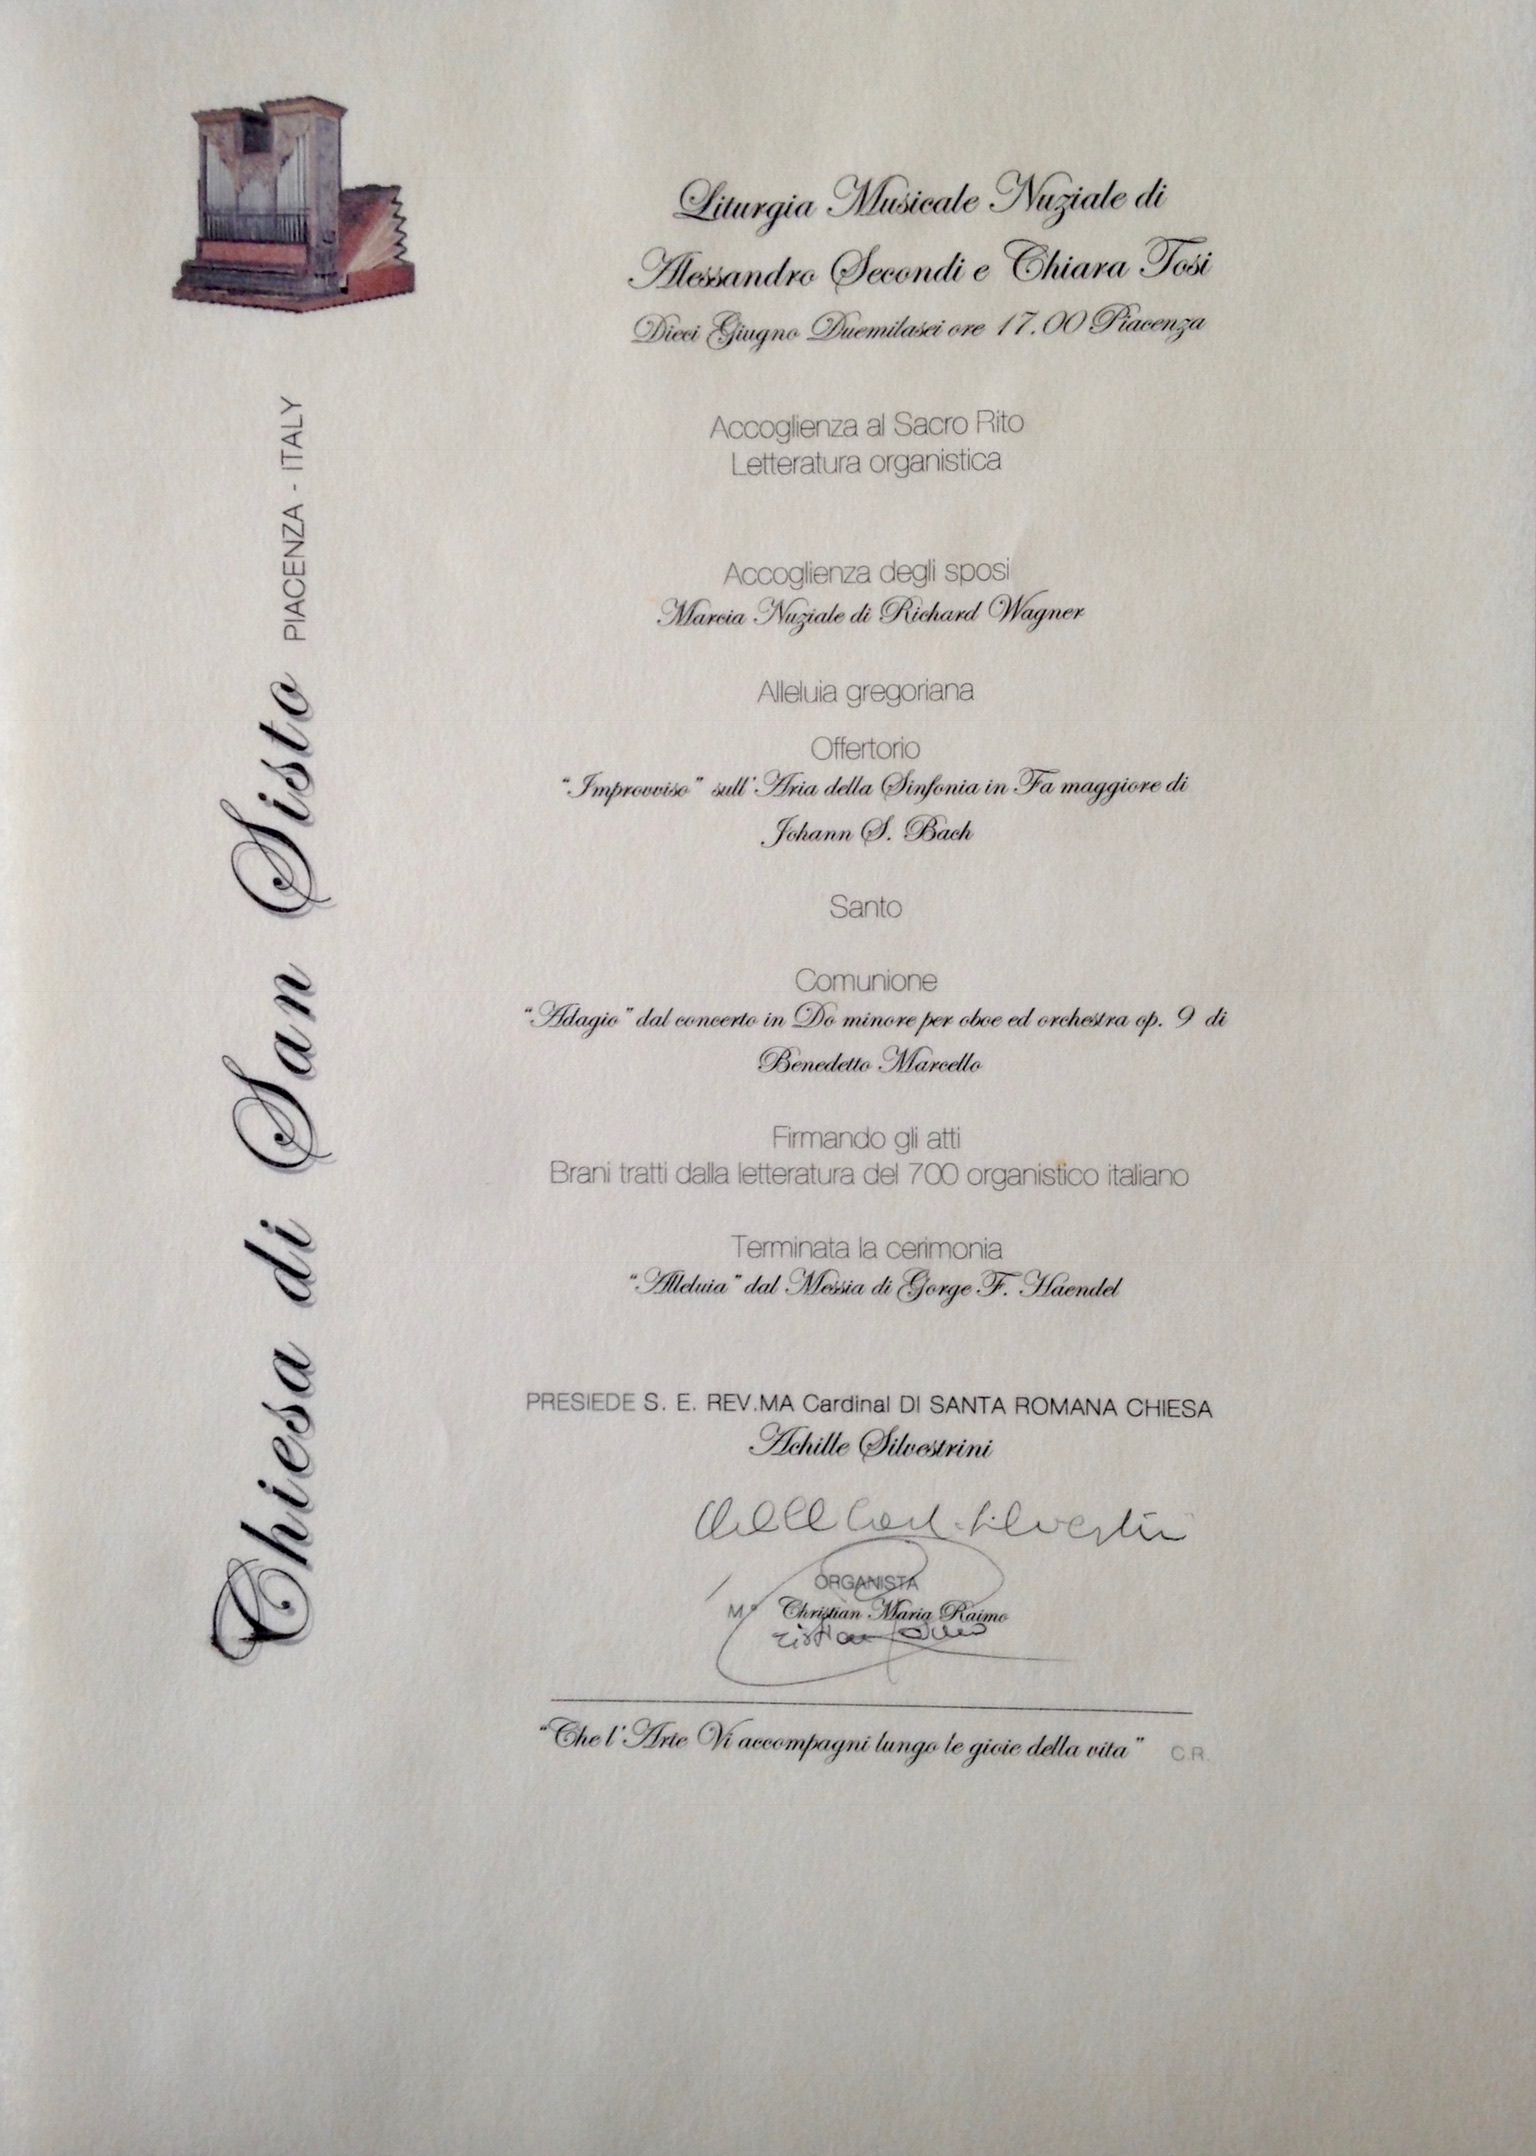 Liturgia Musicale Nuziale di
Alessandro Secondi e Chiara Tosi
Dieci Giugno Duemilasei ore 17.00 Piacenza
Accoglienza al Sacro Rito
Letteratura organistica
Accoglienza degli sposi
Marcia Nuziale di Richard Wagner
Alleluia gregoriana
Offertorio
"Improvviso" sull'Aria della Sinfonia in Fa maggiore di
Johann S. Bach
Santo
Comunione
"Adagio" dal concerto in Do minore per oboe ed orchestra op. 9 di
Benedetto Marcello
Firmando gli atti
Brani tratti dalla letteratura del 700 organistico italiano
Terminata la cerimonia
"Alleluia" dal Messia di Gorge F. Haendel
PRESIEDE S. E. REV.MA Cardinal DI SANTA ROMANA CHIESA
Achille Silvestrini
Card. Silvestrini
ORGANISTA
M° Christian Maria Raimo
"Che l'Arte Vi accompagni lungo le gioie della vita" C.R.
Chiesa di San Sisto PIACENZA - ITALY